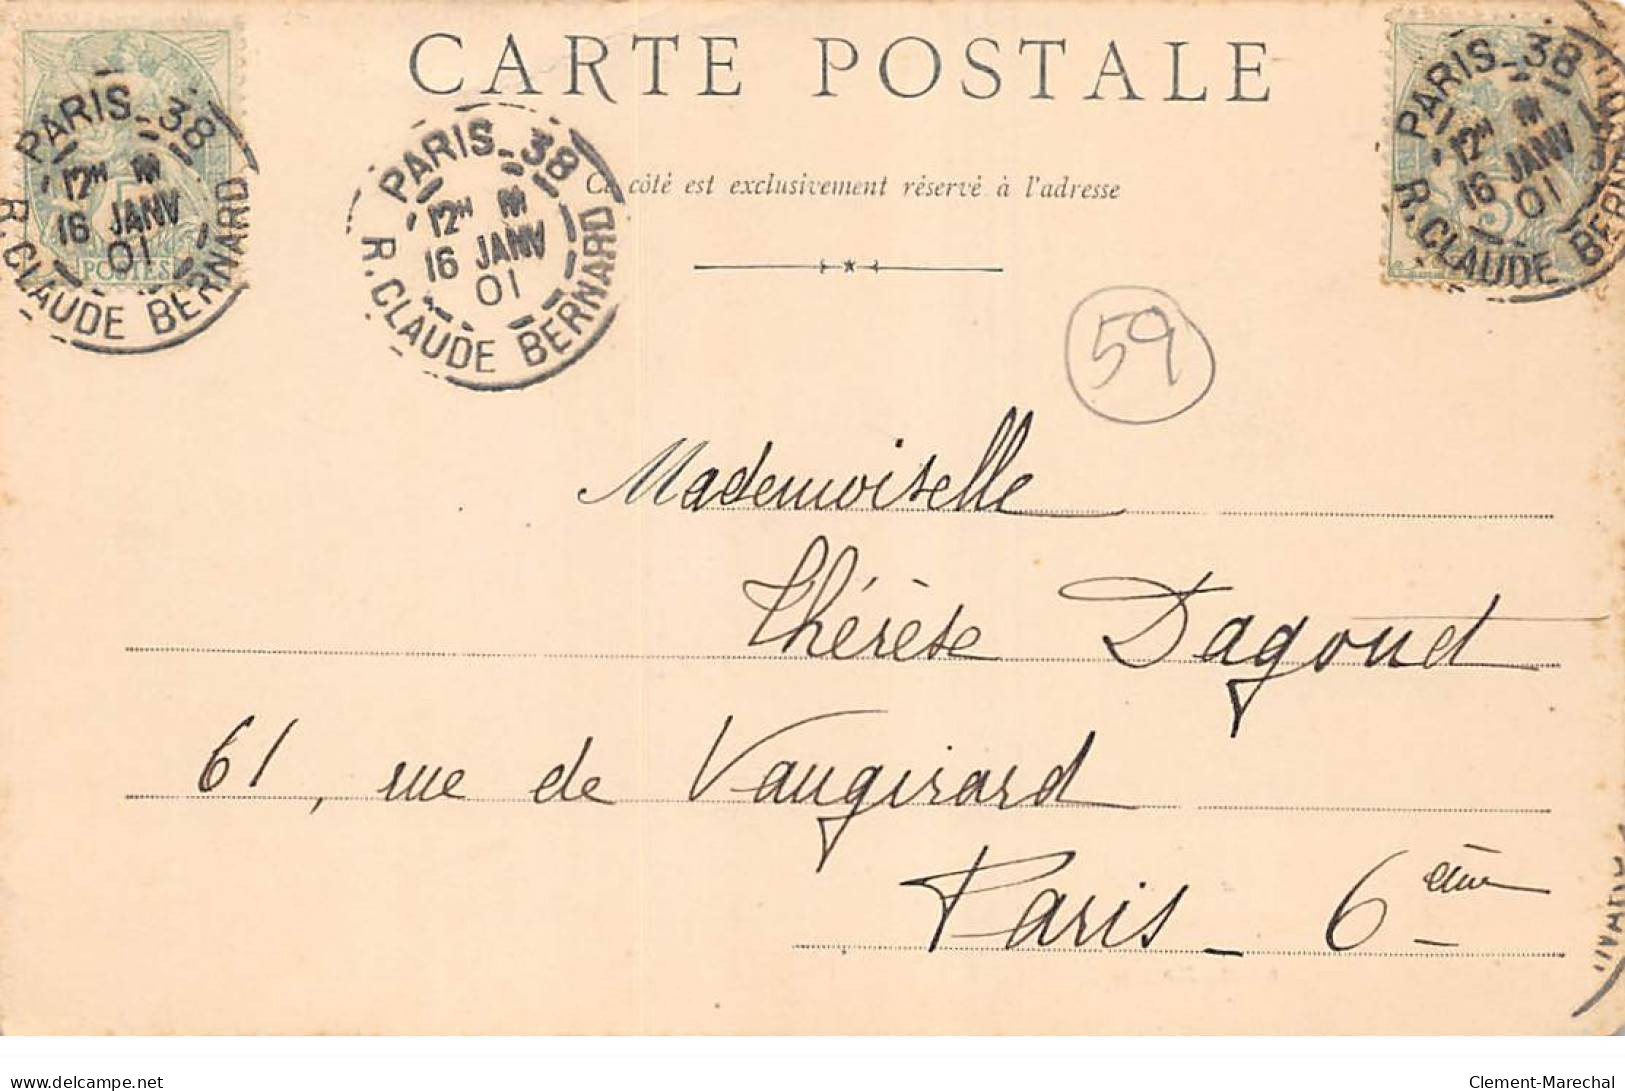 CARTE POSTALE
Ce côté est exclusivement réservé à l'adresse
PARIS_38
12H
16 JANV
01
R. CLAUDE BERNARD
POSTES
PARIS_38
12H
16 JANV
01
R. CLAUDE BERNARD
PARIS_38
12H
16 JANV
01
R. CLAUDE BERNARD
5
59
Mademoiselle
Thérèse Dagoud
61, rue de Vaugirard
Paris _ 6ème
delcampe.net
Clement-Marechal